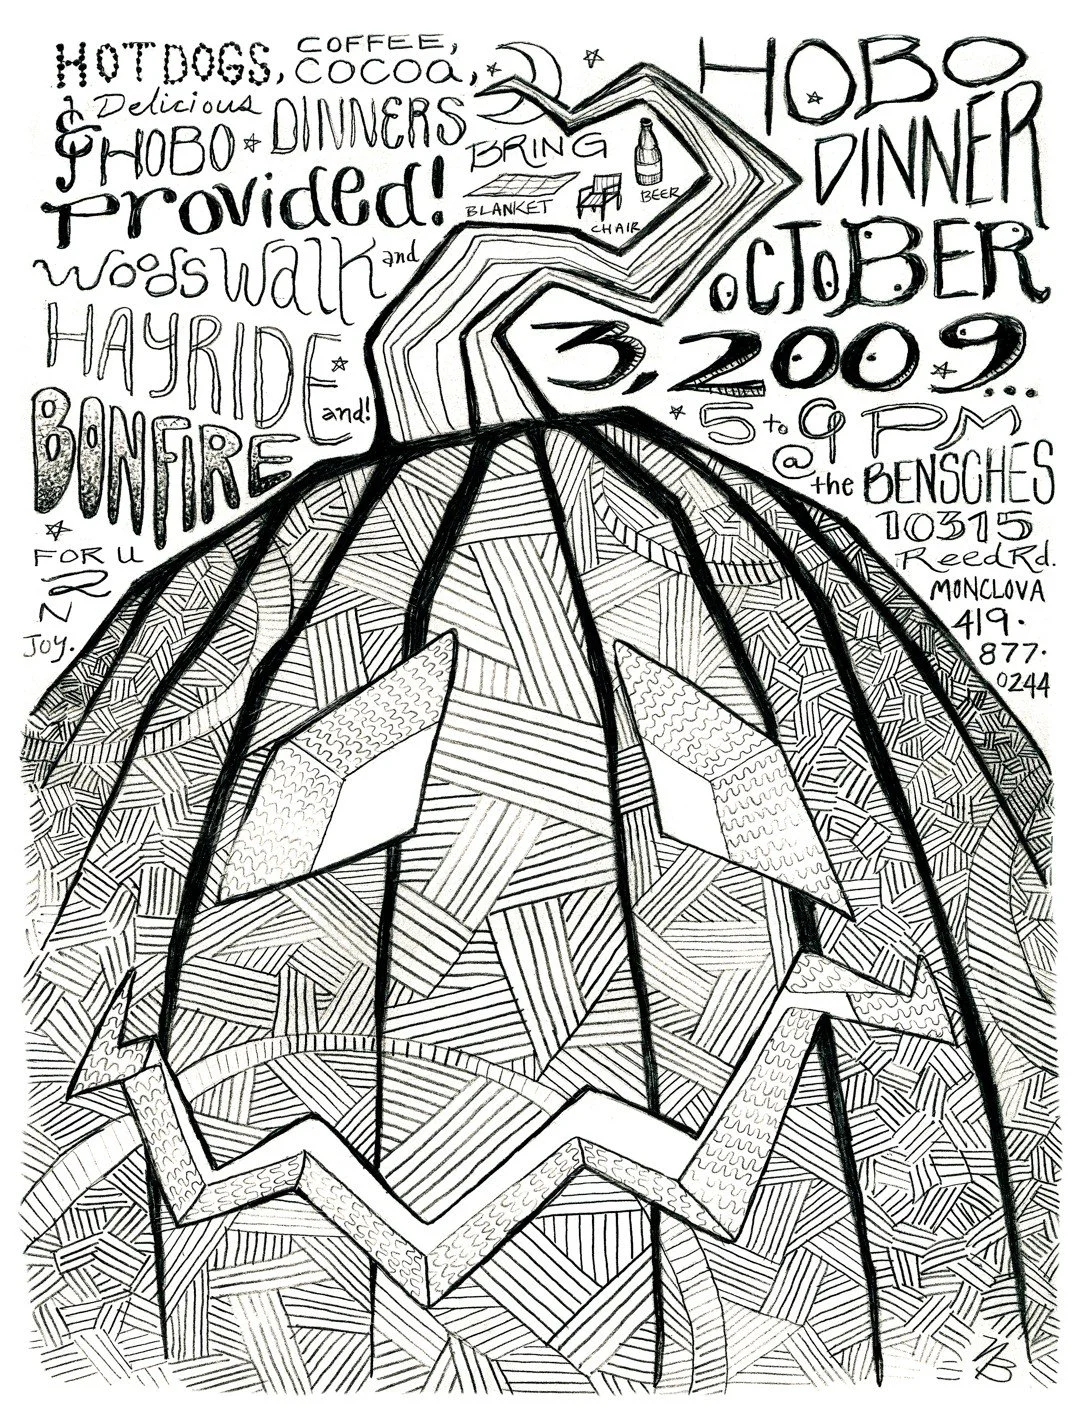 HOT DOGS, COFFEE, COCOA,
& Delicious HOBO DINNERS
Provided!
Woods Walk and
HAYRIDE
and!
BONFIRE
FOR U
2
N
JOY.
BRING
BLANKET
CHAIR
BEER
HOBO
DINNER
OCTOBER
3, 2009...
5 to 9 PM
@ the BENSCHES
10315
Reed Rd.
MONCLOVA
419.
877.
0244